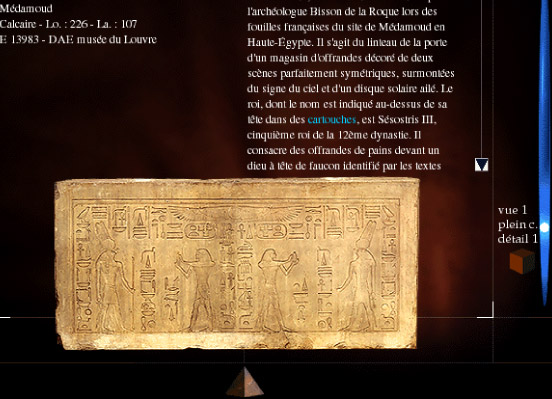 Médamoud
Calcaire - Lo. : 226 - La. : 107
E 13983 - DAE musée du Louvre
l'archéologue Bisson de la Roque lors des
fouilles françaises du site de Médamoud en
Haute-Égypte. Il s'agit du linteau de la porte
d'un magasin d'offrandes décoré de deux
scènes parfaitement symétriques, surmontées
du signe du ciel et d'un disque solaire ailé. Le
roi, dont le nom est indiqué au-dessus de sa
tête dans des cartouches, est Sésostris III,
cinquième roi de la 12ème dynastie. Il
consacre des offrandes de pains devant un
dieu à tête de faucon identifié par les textes
vue 1
plein c.
détail 1